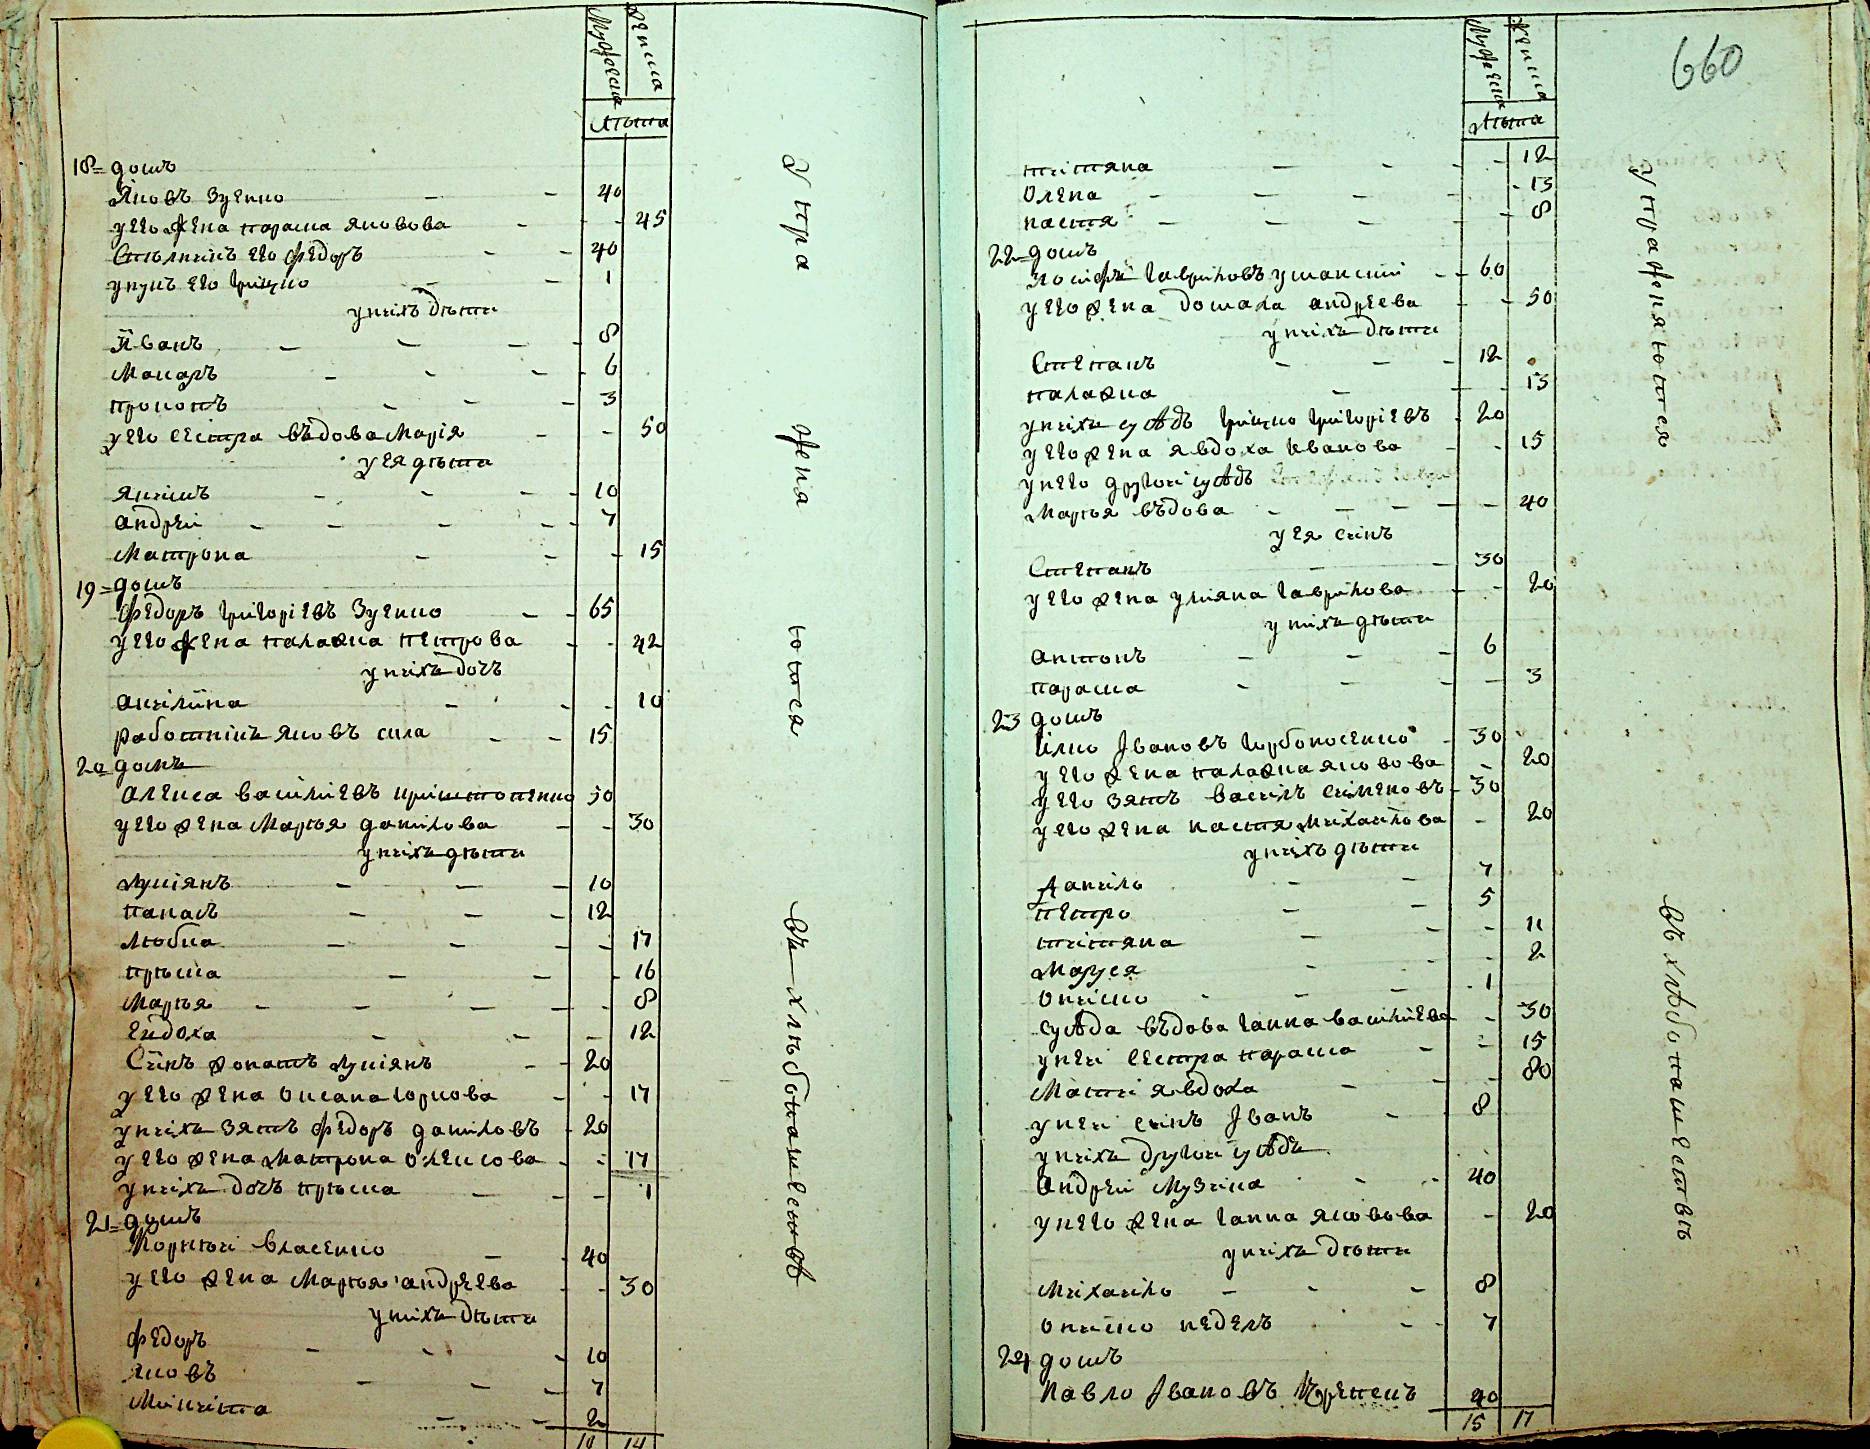 Мужеска Женска
Лѣта
18= домъ
Яковъ Зуенко - - 40
у его жена параска яковова - - 45
его Федоръ - - 40
его грицко - - 1
у нихъ дѣти
Иванъ - - - 8
Макаръ - - - 6
прокопъ - - - 3
у его сестра въдова Марія - - 50
у ея дѣти
якимъ - - - 10
андрей - - - 7
Матрона - - - 15
19= домъ
Федоръ григоріевъ Зуенко - - 65
у его жена палажка петрова - - 42
у нихъ дочъ
акилина - - - 10
работникъ яковъ сила - - 15
20= домъ
алекса василіевъ 50
у его жена Марья данилова - - 30
у нихъ дѣти
лукіянъ - - - 10
панасъ - - - 12
любка - - - 17
прѣска - - - 16
Марья - - - 8
Евдоха - - - 12
Синъ лукіянъ - - 20
у его жена оксана - - 17
у нихъ зять Федоръ даниловъ - 20
у его жена Матрона олексова - - 17
у нихъ дочъ прѣска - - - 1
21= домъ
Корнѣй власенко - - 40
у его жена Марья андреева - - 30
у нихъ дѣти
Федоръ - - - 10
яковъ - - - 7
Микита - - 2
14
Упражняются
въ хлѣбопашествѣ
660
Мужеска Женска
Лѣта
титяна - - - 12
Олена - - - 13
настя - - - 8
22= домъ
Іосифъ гавриловъ уманскій - - 60
у его жена домаха андреева - - 50
у нихъ дѣти
Степанъ - - - 12
палажка - - 13
у нихъ сусѣдъ грицко григоріевъ - 20
у его жена явдоха иванова - - 15
у него другой сусѣдъ
Марья въдова - - - - 40
у ея синъ
Степанъ - - 30
у его жена уліяна гаврилова - - 20
у нихъ дѣти
антонъ - - - 6
параска - - - 3
23 домъ
Илко Івановъ - 30
у его жена палажка яковова - 20
у его зять василь семеновъ - 30
у его жена настя михайлова - 20
у нихъ дѣти
Данило - - 7
петро - - 5
титяна - - - 11
Маруся - - 2
Онисько - - - 1
сусѣда въдова ганна василіева - 30
у неи сестра параска - - 15
Мати явдоха - - - 80
у неи синъ Іванъ - 8
у нихъ другой сусѣдъ
Андрей Музика - - 40
у него жена ганна яковова - 20
у нихъ дѣти
Михайло - - - 8
- - 7
24 домъ
Павло Івановъ 40
15 17
Упражняются
въ хлѣбопашествѣ